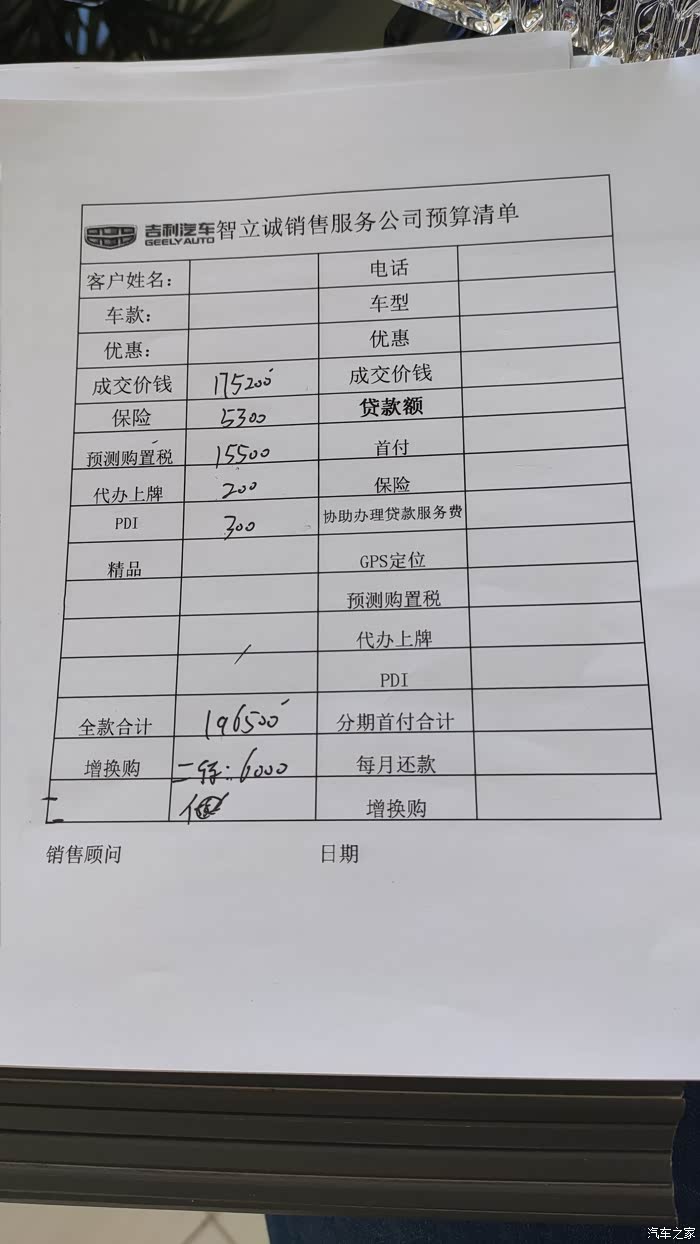 吉利汽车 GEELY AUTO 智立诚销售服务公司预算清单
客户姓名： 电话
车款： 车型
优惠： 优惠
成交价钱 175200 成交价钱
保险 5300 贷款额
预测购置税 15500 首付
代办上牌 200 保险
PDI 300 协助办理贷款服务费
精品 GPS定位
预测购置税
代办上牌
PDI
全款合计 196500 分期首付合计
增换购 6000 每月还款
增换购
销售顾问 日期
汽车之家